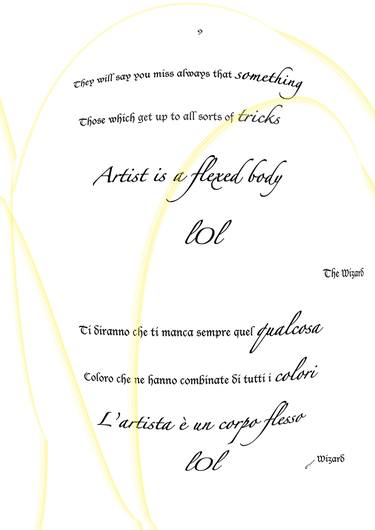 9
They will say you miss always that something
Those which get up to all sorts of tricks
Artist is a flexed body
lOl
The Wizard
Ti diranno che ti manca sempre quel qualcosa
Coloro che ne hanno combinate di tutti i colori
L'artista è un corpo flesso
lOl
Wizard